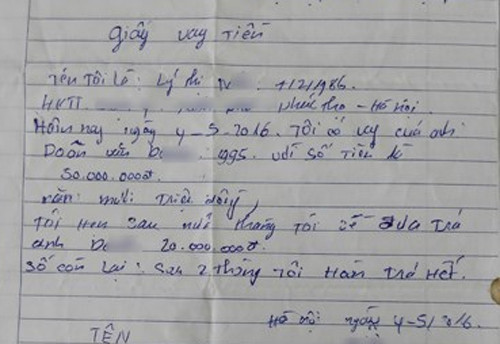 Giấy vay tiền
Tên Tôi là: Lý thị 1986.
HKTT phúc thọ - Hà Nội.
Hôm nay ngày 4-5-2016. Tôi có vay của anh
Doãn văn 1995. với số tiền là
50.000.000đ.
năm mươi triệu đồng
Tôi Hẹn sau tháng Tôi sẽ đưa trả
anh 20.000.000đ.
Số còn lại: Sau 2 tháng Tôi Hoàn Trả Hết.
Hà nội ngày 4-5/2016.
TÊN